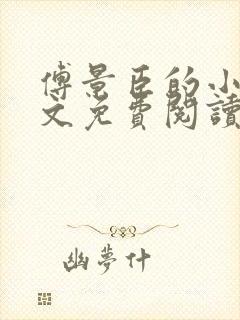 傅景臣的小
文免費閱讀
幽夢什